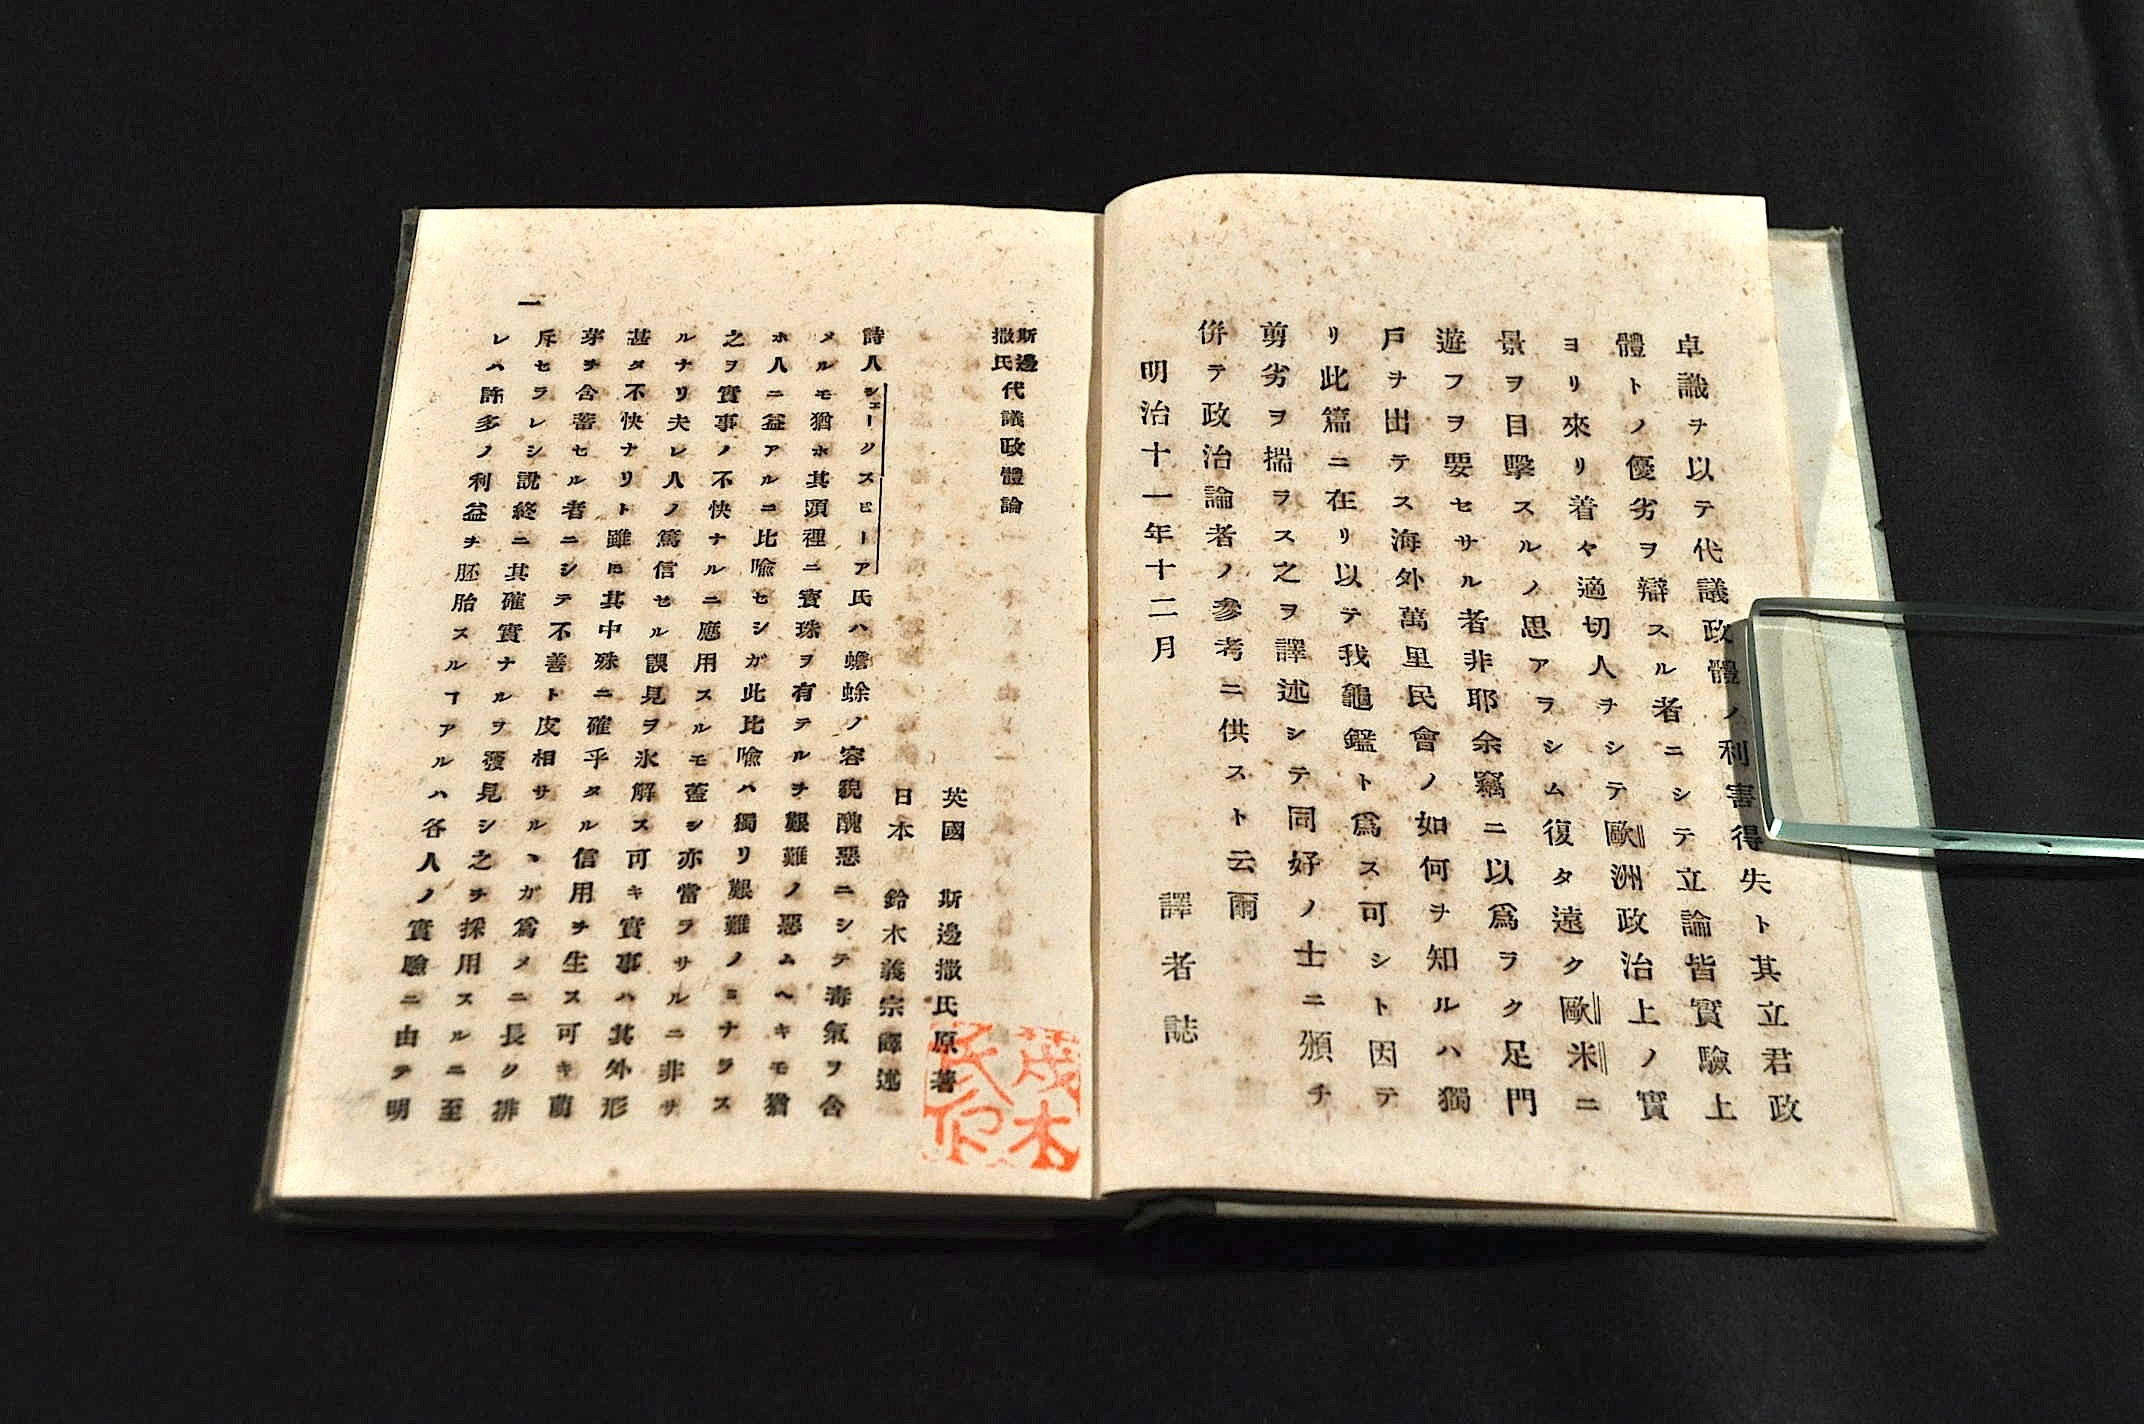 卓識ヲ以テ代議政體ノ利害得失ト其立君政
體トノ優劣ヲ辯スル者ニシテ立論皆實驗上
ヨリ來リ着々適切人ヲシテ歐洲政治上ノ實
景ヲ目擊スルノ思アラシム復タ遠ク歐米ニ
遊フヲ要セサル者非耶余竊ニ以爲ヲク足門
戶ヲ出テス海外萬里民會ノ如何ヲ知ルハ獨
リ此篇ニ在リ以テ我龜鑑ト爲ス可シト因テ
剪劣ヲ揣ヲス之ヲ譯述シテ同好ノ士ニ頒チ
併テ政治論者ノ參考ニ供スト云爾
明治十一年十二月
譯者誌
斯邊撒氏代議政體論
英國 斯邊撒氏原著
日本 鈴木義宗譯述
詩人シェークスピーア氏ハ蟾蜍ノ容貌醜惡ニシテ毒氣ヲ含
メルモ猶ホ其頭裡ニ寶珠ヲ有テルヲ艱難ノ惡ムヘキモ猶
ホ人ニ益アルニ比喩セシガ此比喩ハ獨リ艱難ノミナラス
之ヲ實事ノ不快ナルニ應用スルモ蓋シ亦當ヲサルニ非サ
ルナリ夫レ人ノ篤信セル誤見ヲ氷解ス可キ實事ハ其外形
甚タ不快ナリト雖𪜈其中殊ニ確乎タル信用ヲ生ス可キ萠
芽ヲ含蓄セル者ニシテ不善ト皮相サルヽガ爲メニ長ク排
斥セラレシ說終ニ其確實ナルヲ發見シ之ヲ採用スルニ至
レハ許多ノ利益ヲ胚胎スルヿアルハ各人ノ實驗ニ由テ明
一
茂木